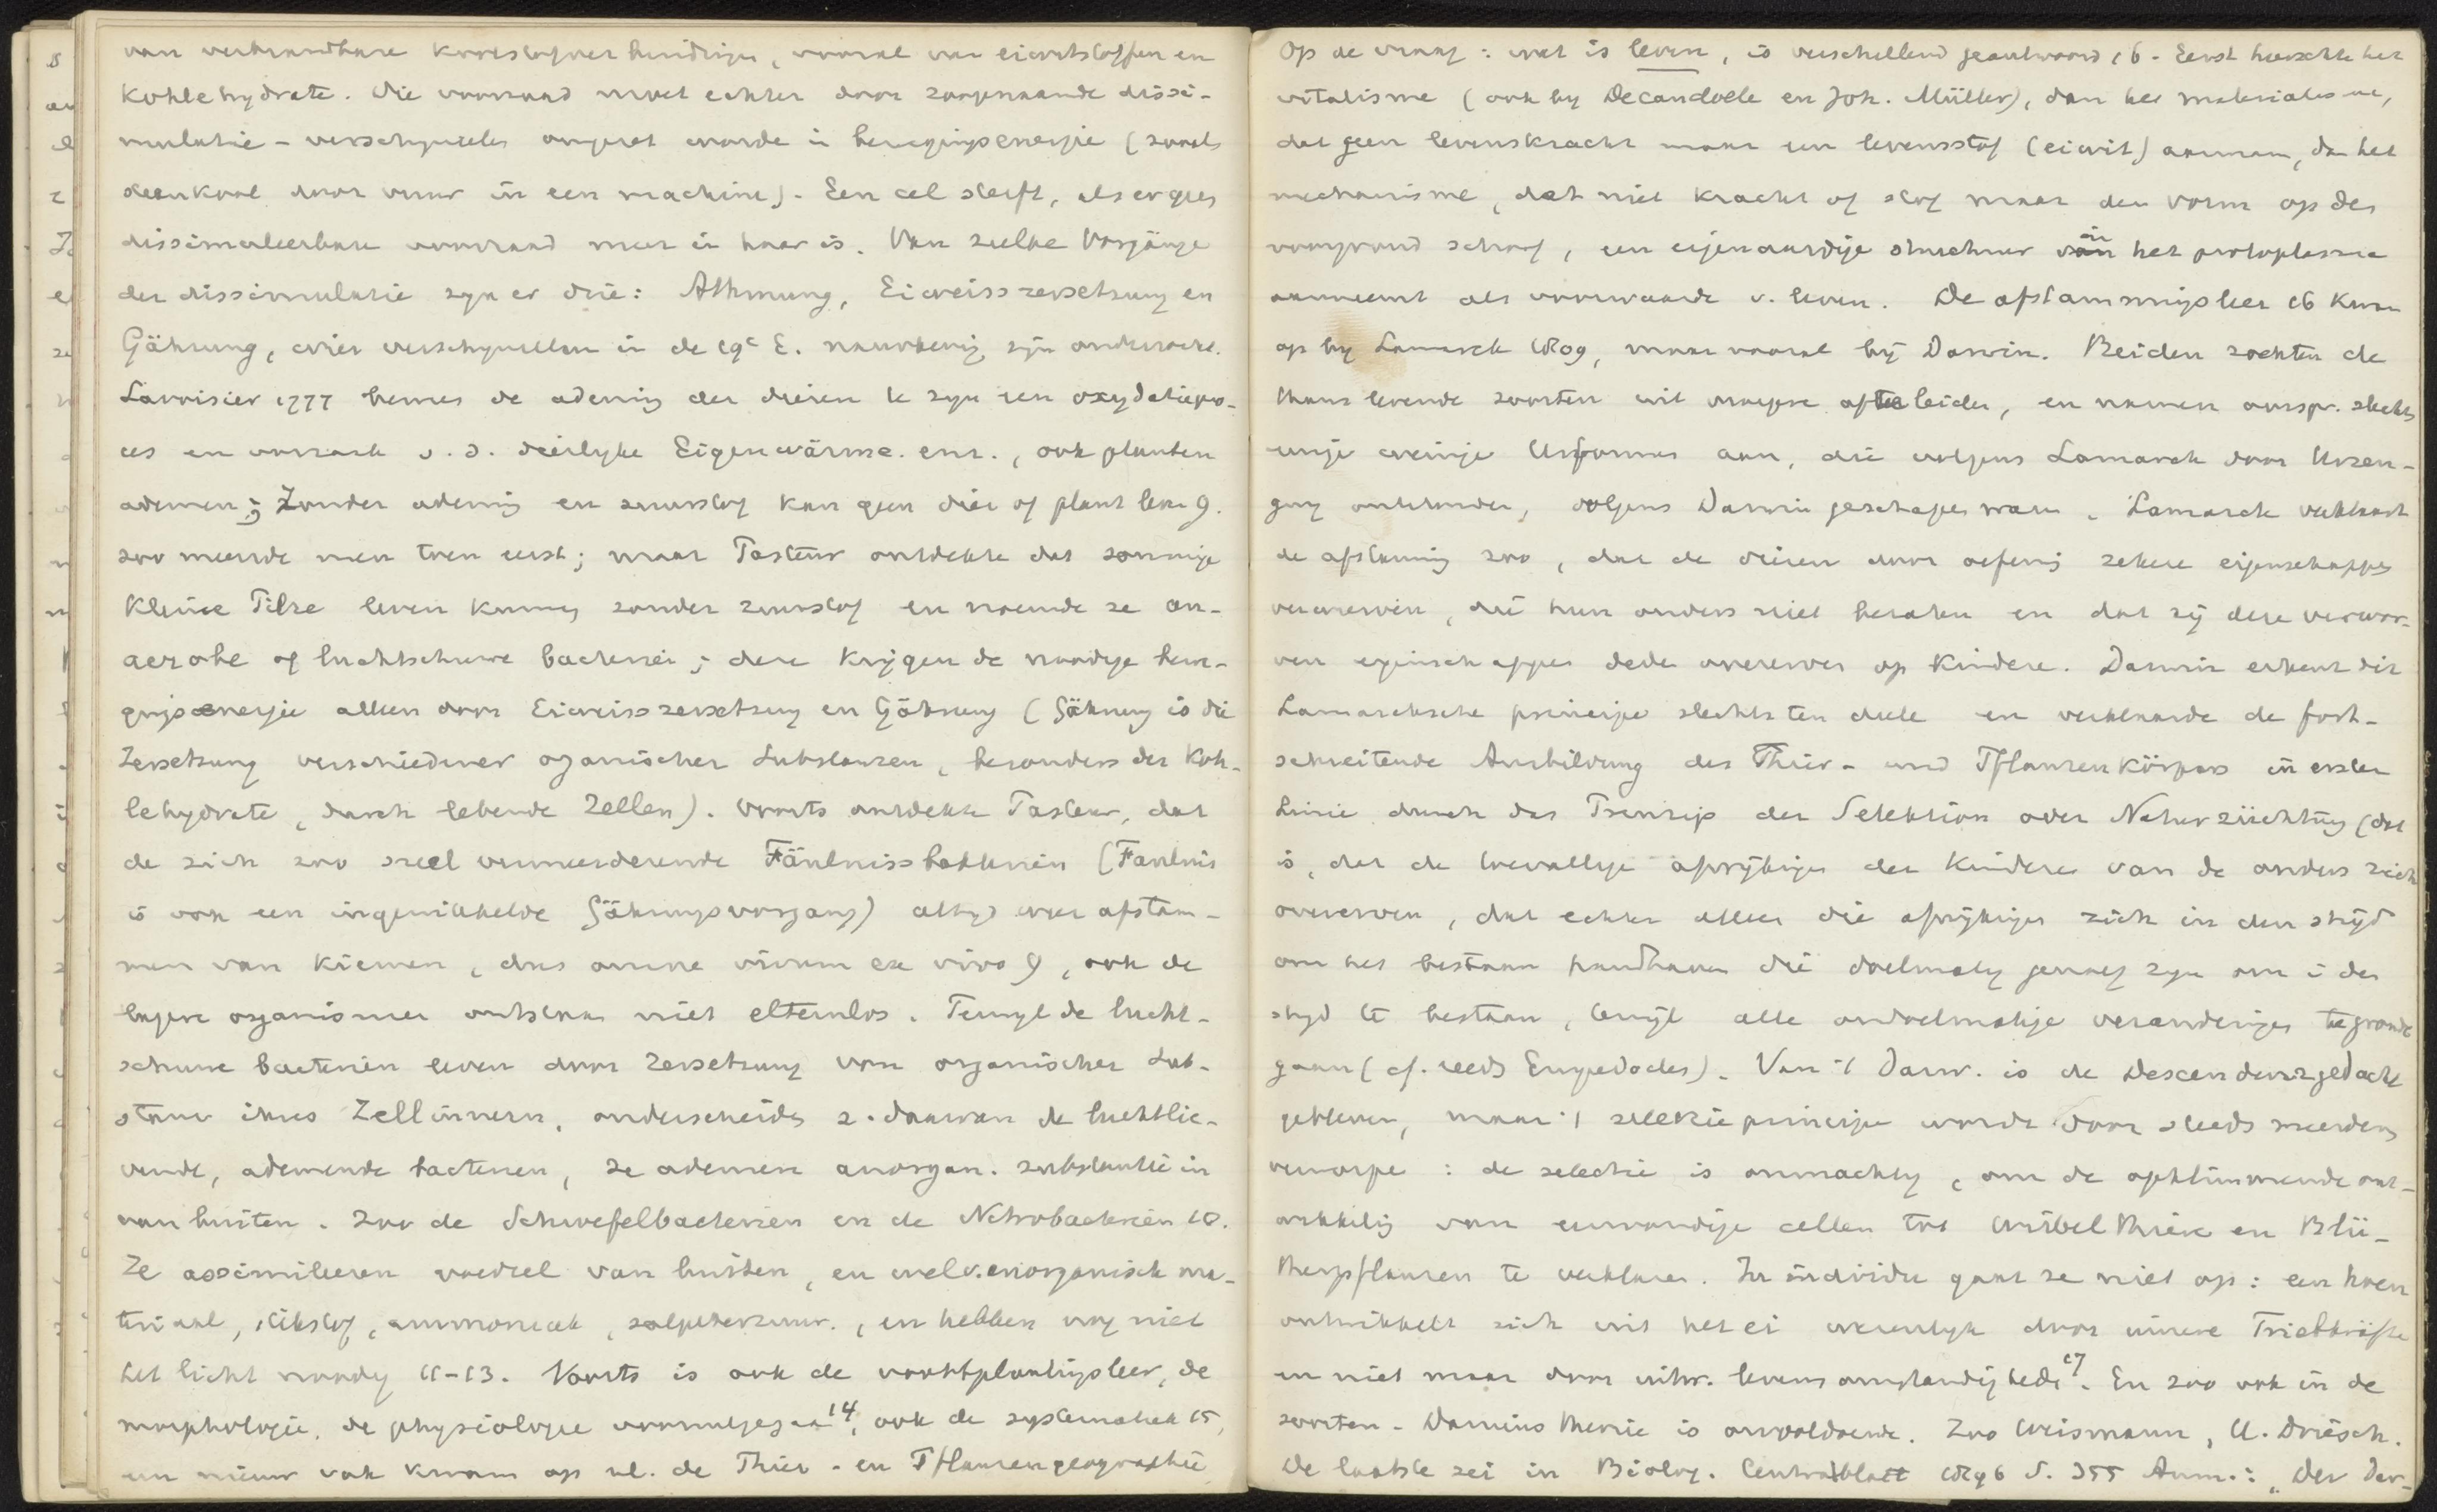 van verbrandbare koolstofverbindingen, vooral van eiwitstoffen en
Kohlehydrate. Die voorraad moet echter door zoogenaamde dissi-
mulatie-verschijnselen omgezet worden in bewegingsenergie (zooals
steenkool door vuur in een machine). Een cel sterft, als er geen
dissimuleerbare voorraad meer in haar is. Van zulke Vorgänge
der dissimulatie zyn er drie: Athmung, Eiweisszersetzung en
Gährung, wier verschynselen in de 19e E. nauwkeurig zyn onderzocht.
Lavoisier 1777 bewees de ademing der dieren te zyn een oxydatiepro-
ces en oorzaak v. d. dierlyke Eigenwärme. enz., ook planten
ademen; Zonder ademing en zuurstof kan geen dier of plant leven 9.
zoo meende men toen eerst; maar Pasteur ontdekte dat sommige
kleine Pilze leven kunnen zonder zuurstof en noemde ze an-
aerobe of luchtschuwe bacteriën; deze krijgen de noodige bewe-
gingsenergie alleen door Eiweisszersetzung en Gährung (Gährung is die
Zersetzung verschiedener organischer Substanzen, besonders der Koh-
lehydrate, durch lebende Zellen). Voorts ontdekte Pasteur, dat
de zich zoo snel vermeerderende Fäulnissbakterien (Faulnis
is ook een ingewikkelde Gährungsvorgang) altyd weer afstam-
men van kiemen, dus omne vivum ex vivo 9, ook de
lagere organismen ontstaan niet elternlos. Terwyl de lucht-
schuwe bacteriën leven door Zersetzung von organischer Sub-
stanz ihres Zellinnern, onderscheiden z. daarvan de luchtlie-
vende, ademende bacterien, ze ademen anorgan. substantie in
van buiten. Zoo de Schwefelbacterien en de Nitrobacteriën 10.
Ze assimileeren voedsel van buiten, en wel v. anorganisch ma-
teriaal, stikstof, ammoniak, salpeterzuur., en hebben nog niet
het licht noodig 11-13. Voorts is ook de voortplantingsleer, de
morphologie, de physiologie vooruitgegaan 14, ook de systematiek 15,
een nieuw vak kwam op nl. de Thier- en Pflanzengeographie
Op de vraag: wat is leven, is verschillend geantwoord 16. Eerst heerschte het
vitalisme (ook by Decandolle en Joh. Müller), dan het materialisme,
dat geen levenskracht maar een levensstof (eiwit) aannam, dan het
mechanisme, dat niet kracht of stof maar den vorm op den
voorgrond schoof, een eigenaardige structuur in het protoplasma
aanneemt als voorwaarde v. leven. De afstammingsleer 16 kwam
op by Lamarck 1809, maar vooral bij Darwin. Beiden zochten de
thans levende soorten uit vroegere af te leiden, en namen oorspr. slechts
enige weinige Urformen aan, die volgens Lamarck door Urzeu-
gung ontstonden, volgens Darwin geschapen waren. Lamarck verklaart
de afstamming zoo, dat de dieren door oefening zekere eigenschappen
verwerven, die hun anders niet bezaten en dat zij deze verwor-
ven eigenschappen deden overerven op kinderen. Darwin erkent dit
Lamarcksche principe slechts ten deele en verklaarde de fort-
schreitende Ausbildung des Thier- und Pflanzenkörpers in erster
Linie durch das Prinzip der Selektion oder Naturzüchtung (dat
is, dat de toevallige afwijkingen der kinderen van de ouders zich
overerven, dat echter alleen die afwijkingen zich in den strijd
om het bestaan handhaven die doelmatig genoeg zyn om i den
stryd te bestaan, terwijl alle ondoelmatige veranderingen te gronde
gaan (cf. reeds Empedocles). Van 't Darw. is de Descendenzgedachte
gebleven, maar 't selectieprincipe wordt door steeds meerderen
verworpen: de selectie is onmachtig, om de opklimmende ont-
wikkeling van eenvoudige cellen tot Wirbelthiere en Blü-
thenpflanzen te verklaren. In individu gaat ze niet op: een hoen
ontwikkelt zich uit het ei wezenlyk door innere Triebkräfte
en niet maar door uitw. levensomstandigheden 17. En zoo ook in de
soorten. Darwins theorie is onvoldoende. Zoo Weismann, H. Driesch.
De laatste zei in Biolog. Centralblatt 1896 S. 355 Anm.: "Der Dar-